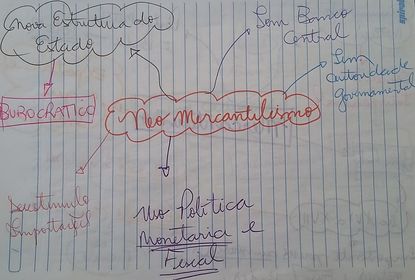 Nova Estructura do
Estado
Sem Banco
Central
Sem
autoridade
governamental
BUROCRATICO
Neo Mercantilismo
Desestimulo
Importação
Uso Política
Monetaria e
Fiscal